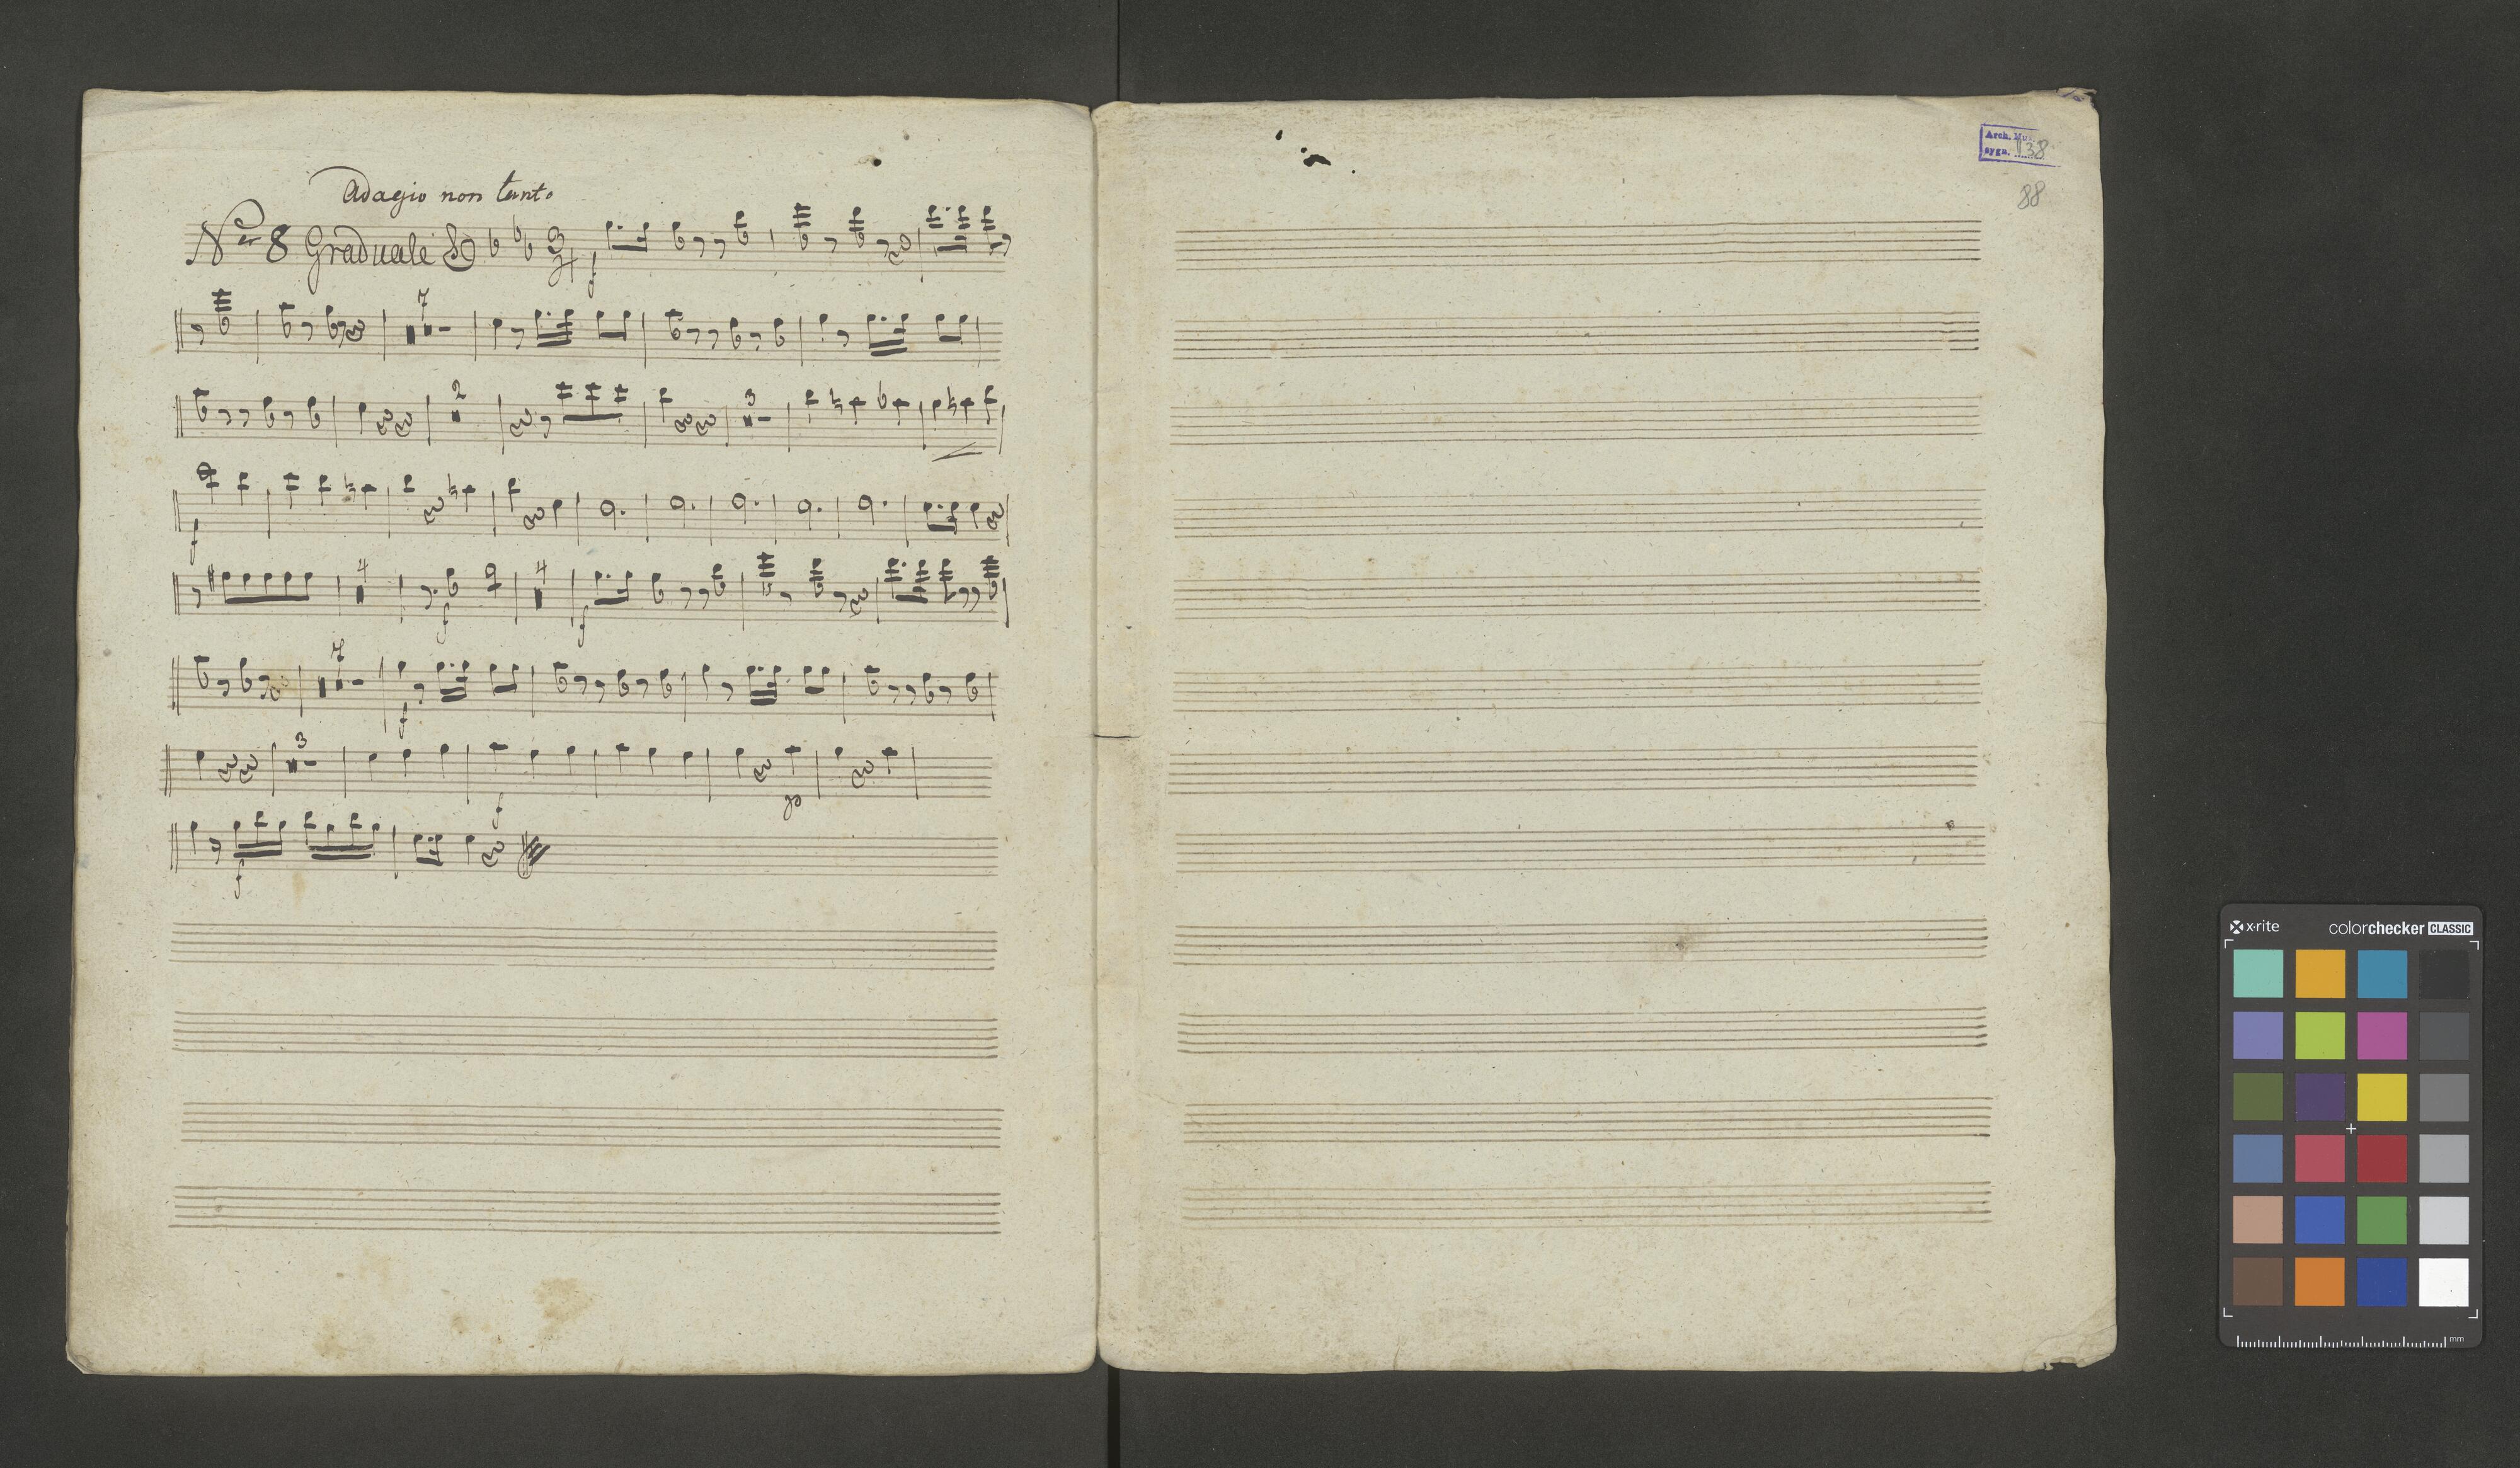 Adagio non tanto
Nro 8 Graduale
3
4
f
7
2
3
f
4
4
f
f
7
f
3
f
p
f
Arch. Mus.
sygn. V 38
88
x·rite
colorchecker CLASSIC
mm